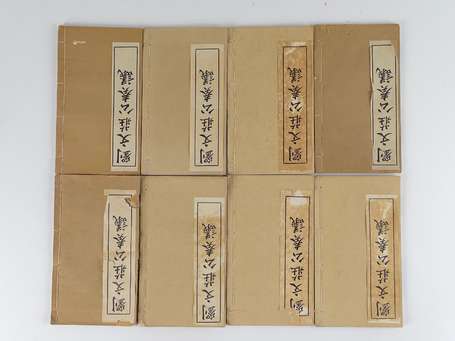 劉文莊公奏議
劉文莊公奏議
劉文莊公奏議
劉文莊公奏議
劉文莊公奏議
劉文莊公奏議
劉文莊公奏議
劉文莊公奏議